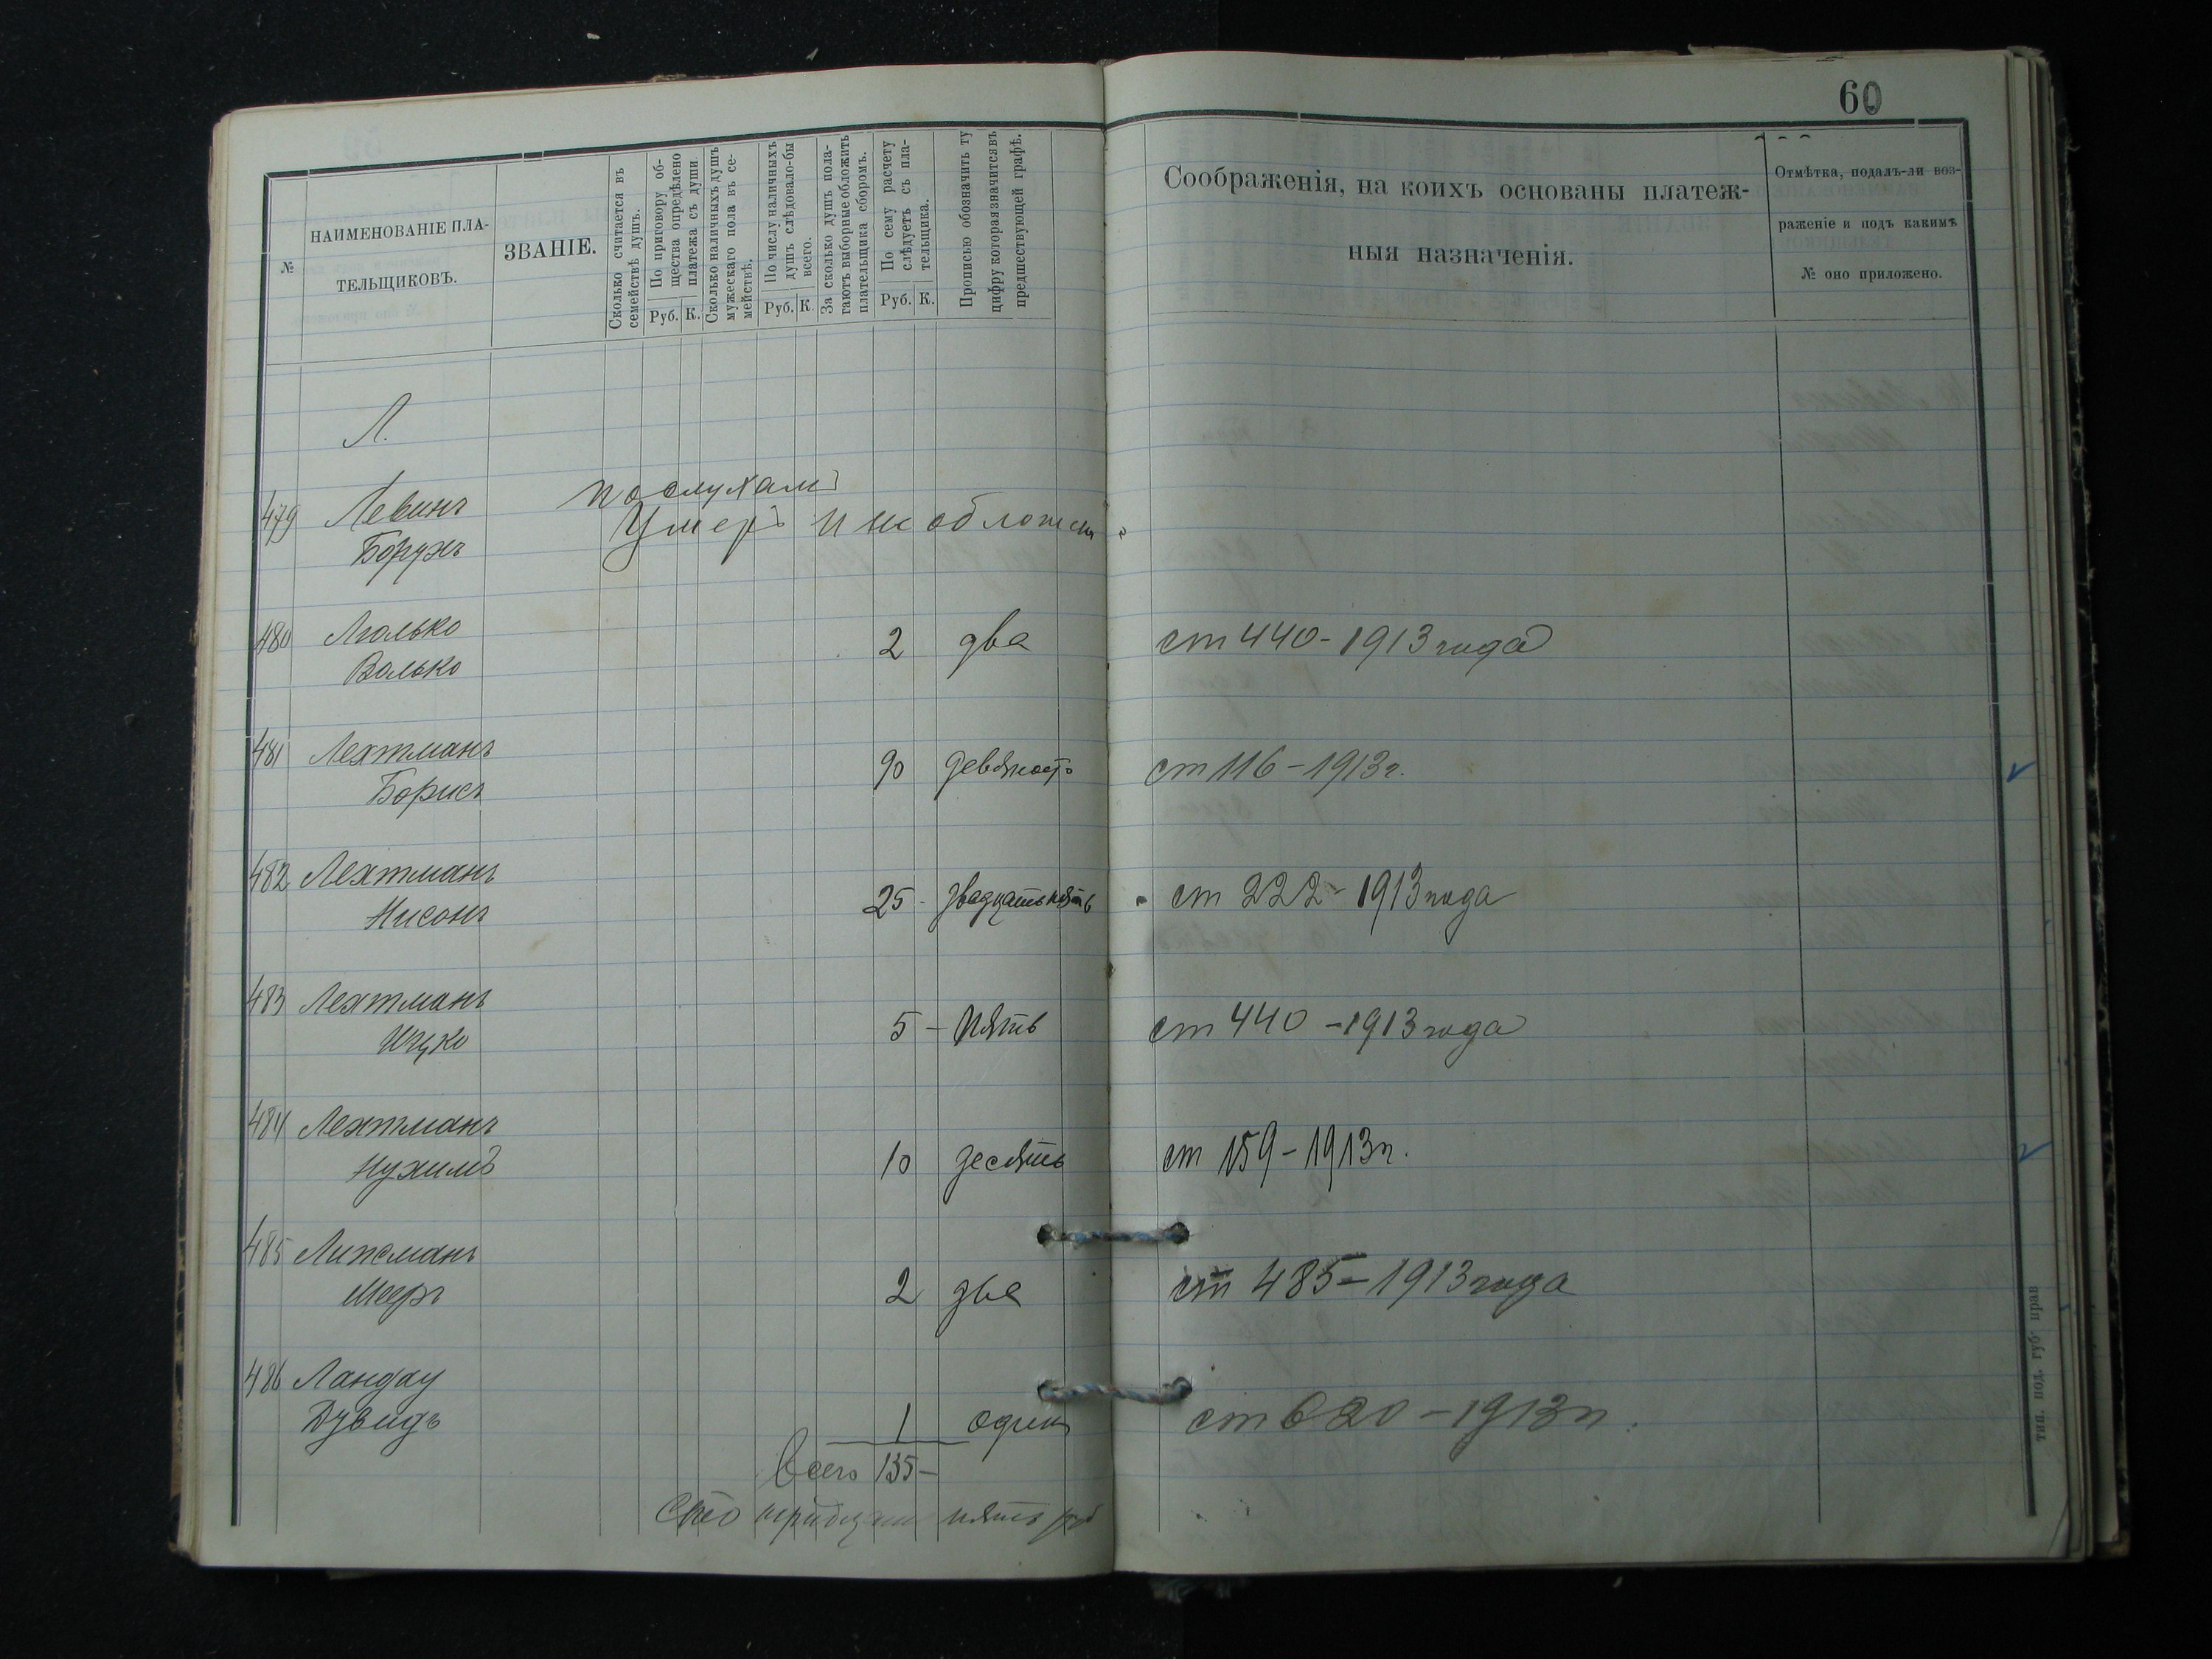 60
№
НАИМЕНОВАНІЕ ПЛА-
ТЕЛЬЩИКОВЪ.
ЗВАНІЕ.
Сколько считается въ
семействѣ душъ.
По приговору об-
щества опредѣлено
платежа съ души
Руб. К.
Сколько наличныхъ душъ
мужескаго пола въ се-
мействѣ.
По числу наличныхъ
душъ слѣдовало-бы
всего.
Руб. К.
За сколько душъ пола-
гаютъ выборные обложить
плательщика сборомъ.
По сему расчету
слѣдуетъ съ пла-
тельщика.
Руб. К.
Прописью обозначить ту
цифру которая значится въ
предшествующей графѣ.
Соображенія, на коихъ основаны платеж-
ныя назначенія.
Отмѣтка, подалъ-ли воз-
раженіе и подъ какимъ
№ оно приложено.
Л.
по слухамъ
479 Левинъ Умеръ и не обложенъ
Борухъ
480 Люлько 2 два ст 440 - 1913 года
Волько
481 Лехтманъ 90 девяносто ст 116 - 1913 г.
Борисъ
482 Лехтманъ 25 - двадцать пять ст 222 - 1913 года
Нисонъ
483 Лехтманъ 5 - пять ст 440 - 1913 года
Ицко
484 Лехтманъ 10 десять ст 159 - 1913 г.
Нухимъ
485 Лижманъ 2 два ст 485 - 1913 года
Мееръ
486 Ландау 1 один ст 620 - 1913 г.
Дувидъ
Всего 135 -
Сто тридцать пять руб
тип. под. губ. прав